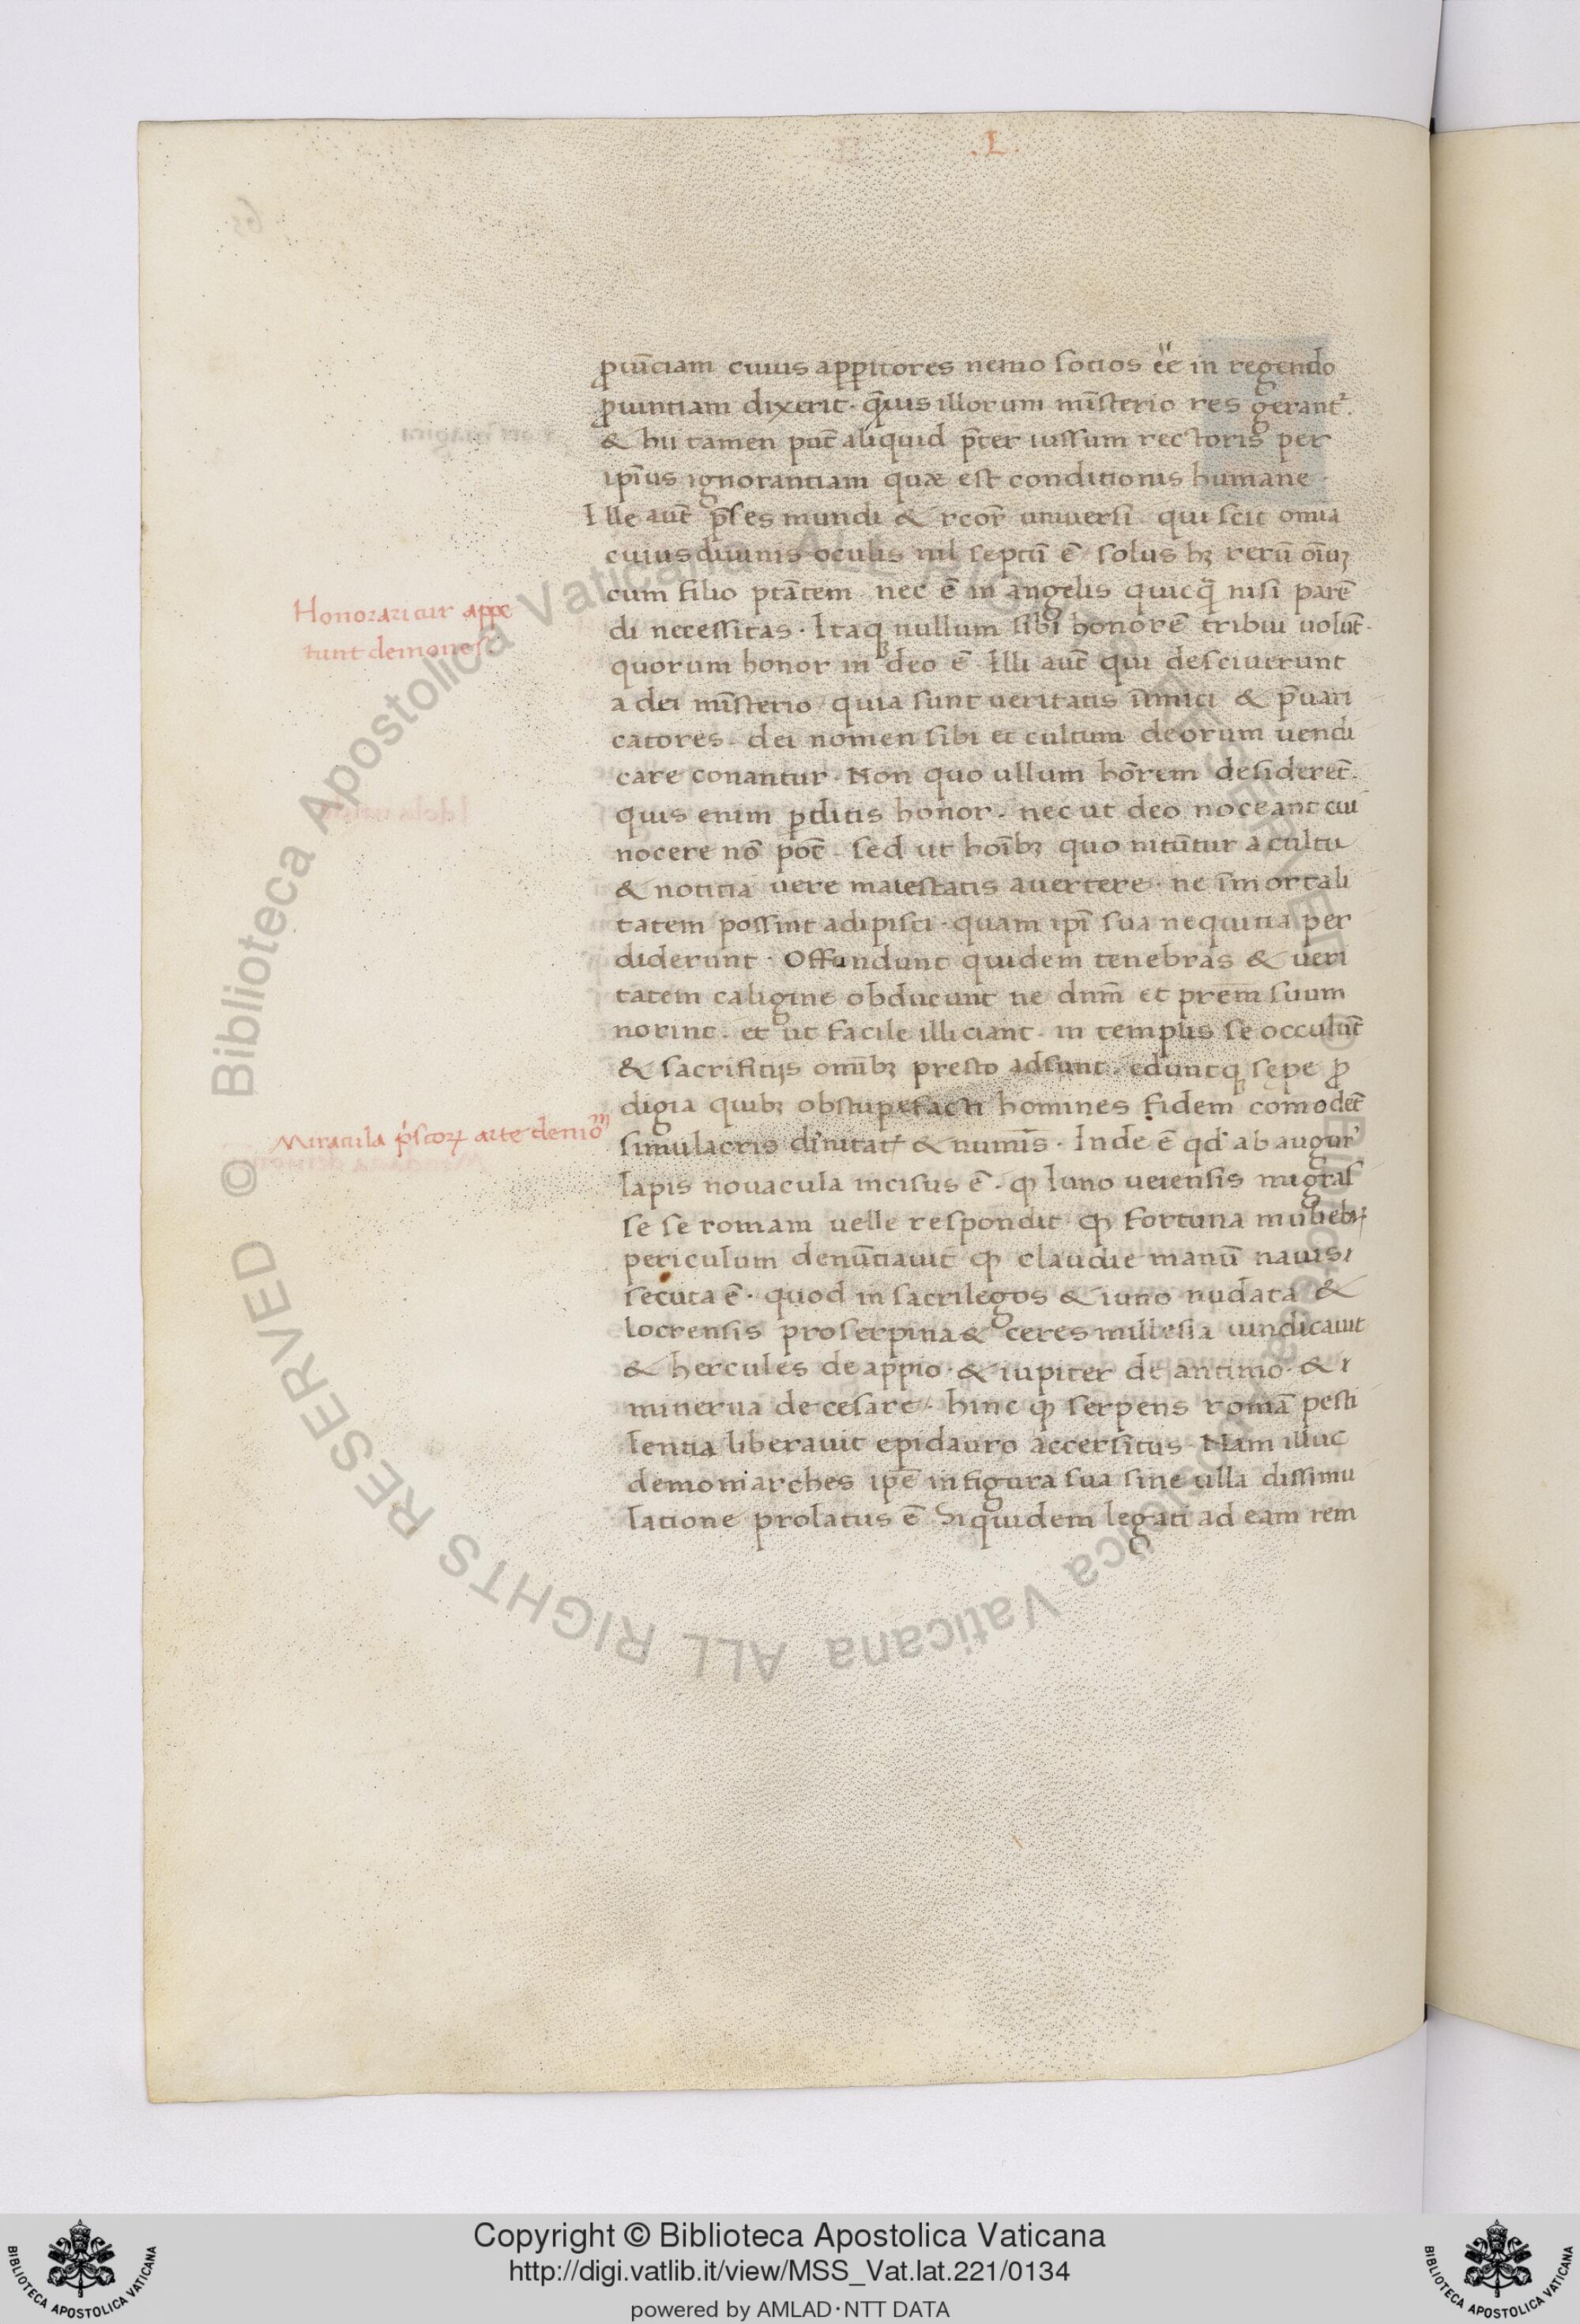 .L.
ꝓuīciam cuius apꝑitores nemo socios ēē in regendo
ꝓuintiam dixerit · q̄uis illorum mīsterio res gerant᷑.
& hii tamen pn̄t aliquid p̄ter iussum rectoris per
ipīus ignorantiam quæ est conditionis humane ·
Ille aut̄ p̄ses mundi & rcor̄ uniuersi qui scit omīa
cuius diuinis oculis nil septū ē solus hꝫ rerū oīuꝫ
cum filio ptātem nec ē in angelis quicq̄ nisi parē
di necessitas · Itaqꝫ nullum sibi honorē tribui uolūt ·
quorum honor in deo ē · Illi aut̄ qui desciuerunt
a dei mīsterio / quia sunt ueritatis īimici & p̄uari
catores · dei nomen sibi et cultum deorum uendi
care conantur · Non quo ullum hōrem desideret̄ ·
quis enim ꝑditis honor · nec ut deo noceant cui
nocere nō pōt · sed ut hoībꝫ quo nitūtur a cultu
& notitia uere maiestatis auertere · ne īmortali
tatem possint adipisci · quam ipī sua nequitia per
diderunt · Offundunt quidem tenebras & ueri
tatem caligine obducunt ne dnm̄ et prem̄ suum
norint · et ut facile illiciant · in templis se occulūt
& sacrifitijs omībꝫ presto adsunt · eduntqꝫ sępe ꝓ
digia quibꝫ obstupefacti homines fidem comodēt
simulacris dīnitat & numīs · Inde ē qd̄ ab augur
lapis nouacula incisus ē · ꝙ Iuno ueiensis migras
se se romam uelle respondit · ꝙ fortuna muliebꝫ
periculum denūtiauit ꝙ claudie manū nauis
secuta ē · quod in sacrilegos & iuno nudata &
locrensis proserpina & ceres millesia uindicauit
& hercules de appio · & iupiter de antinio · &
minerua de cesare · hinc ꝙ serpens romā pesti
lentia liberauit epidauro accersitus · Nam illuc
demoniarches ipē in figura sua sine ulla dissimu
latione prolatus ē Siquidem legati ad eam rem
Honorari cur appe
tunt demones:
Miracula p̓scoꝝ arte demoͫ
© Biblioteca Apostolica Vaticana ALL RIGHTS RESERVED © Biblioteca Apostolica Vaticana ALL RIGHTS RESERVED
BIBLIOTECA APOSTOLICA VATICANA
Copyright © Biblioteca Apostolica Vaticana
http://digi.vatlib.it/view/MSS_Vat.lat.221/0134
powered by AMLAD·NTT DATA
BIBLIOTECA APOSTOLICA VATICANA